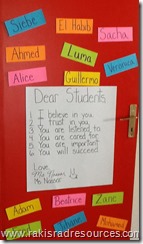 Siebe
El Habib
Sacha
Ahmed
Luma
Veronica
Alice
Guillermo
Dear Students
1 I believe in you
2 I trust in you
3 You are listened to
4 You are cared for
5 You are important
6 You will succeed
Love,
Adam
Beatrice
Zane
Mohamed
www.rakisradresources.com